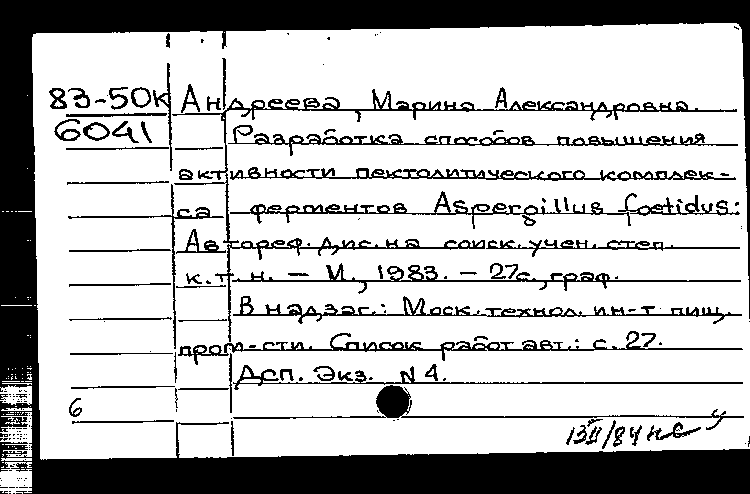 83-50к Андреева, Марина Александровна.
6041 Разработка способов повышения
активности пектолитического комплек-
са ферментов Aspergillus foetidus:
Автореф. дис. на соиск. учен. степ.
к.т.н. – М., 1983. – 27с., граф.
В надзаг.: Моск. технол. ин-т пищ.
пром-сти. Список работ авт.: с. 27.
Дсп. Экз. N 4.
6
13II/84